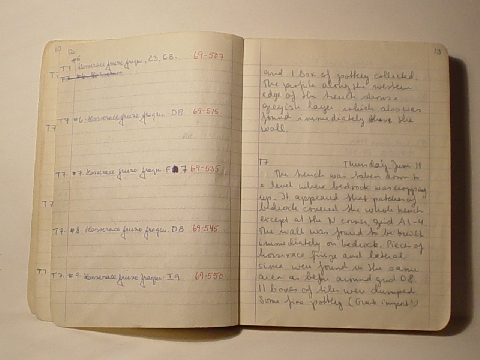 T7 #6 Horserace frieze fragm. 69-527
T7
T7 #6 Horserace frieze fragm. D8 69-535
T7 #7 Horserace frieze fragm. 7
T7
T7 #8 Horserace frieze fragm. D8 69-545
T7 T7 #9 Horserace frieze fragm. 69-550
13
and 1 box of pottery collected.
The profile along the western
edge of the trench shows a
greyish layer which also was
found immediately above the
wall.
T7 Thursday, June 19
The trench was taken down to
a level where bedrock was cropping
up. It appeared that patches of
bedrock covered the whole trench
except at the N corner, grid A1-4.
The wall was found to be built
immediately on bedrock. Pieces of
horserace frieze and lateral
sima were found in the same
area as before around grid D8.
11 boxes of tiles were dumped.
Some fine pottery (Greek imports)